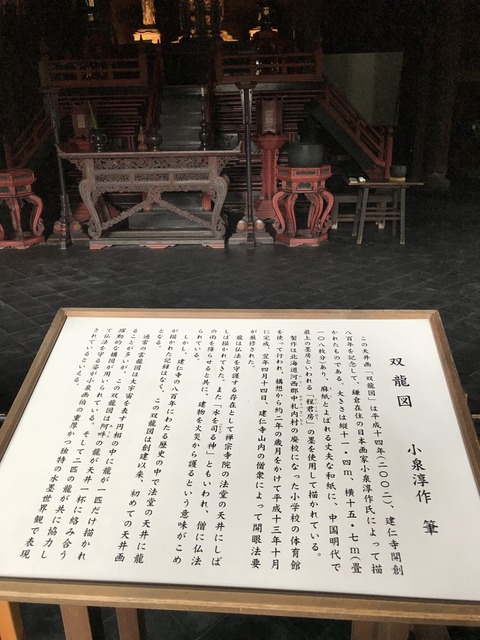 双龍図　　小泉淳作　筆
この天井画「双龍図」は平成十四年(二〇〇二)、建仁寺開創
八百年を記念して、鎌倉在住の日本画家小泉淳作氏によって描
かれたものである。大きさは縦十一・四m、横十五・七m(畳
一〇八枚分)あり、麻紙とよばれる丈夫な和紙に、中国明代で
最上の墨房といわれる「程君房」の墨を使用して描かれている。
製作は北海道河西郡中札内村の廃校になった小学校の体育館
を使って行われ、構想から約二年の歳月をかけて平成十三年十月
に完成。翌年四月十四日、建仁寺山内の僧衆によって開眼法要
が厳修された。
龍は仏法を守護する存在として禅宗寺院の法堂の天井にしば
しば描かれてきた。また「水を司る神」ともいわれ、僧に仏法
の雨を降らせると共に、建物を火災から護るという意味がこめ
られている。
しかし、建仁寺の八百年にわたる歴史の中で法堂の天井に龍
が描かれた記録はなく、この双龍図は創建以来、初めての天井画
通常の雲龍図は大宇宙を表す円相の中に龍が一匹だけ描かれ
ることが多いが、この双龍図は阿吽の龍が天井一杯に絡み合う
躍動的な構図が用いられている。そして二匹の龍が共に協力し
て仏法を守る姿が小泉画伯の重厚かつ独特の水墨世界観で表現
されているといえる。